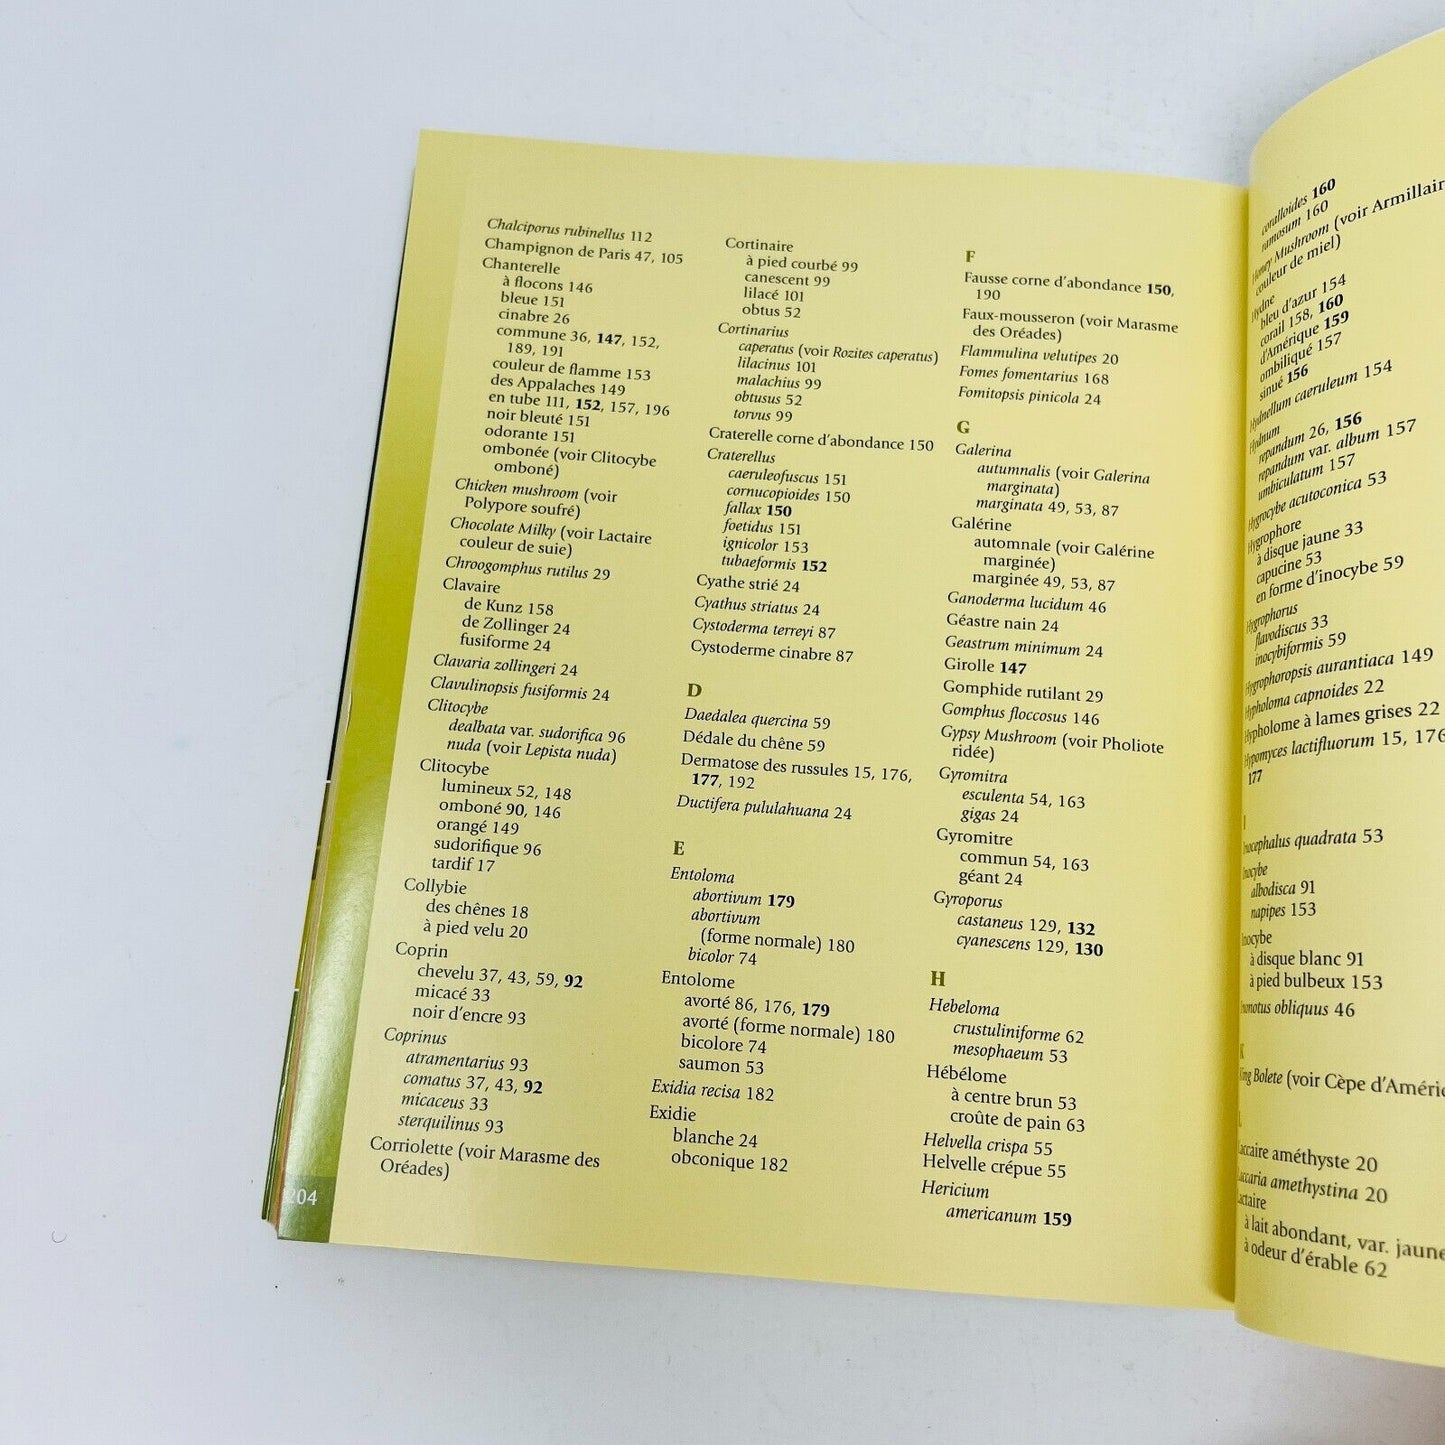 Chalciporus rubinellus 112
Champignon de Paris 47, 105
Chanterelle
à flocons 146
bleue 151
cinabre 26
commune 36, 147, 152,
189, 191
couleur de flamme 153
des Appalaches 149
en tube 111, 152, 157, 196
noir bleuté 151
odorante 151
ombonée (voir Clitocybe
omboné)
Chicken mushroom (voir
Polypore soufré)
Chocolate Milky (voir Lactaire
couleur de suie)
Chroogomphus rutilus 29
Clavaire
de Kunz 158
de Zollinger 24
fusiforme 24
Clavaria zollingeri 24
Clavulinopsis fusiformis 24
Clitocybe
dealbata var. sudorifica 96
nuda (voir Lepista nuda)
Clitocybe
lumineux 52, 148
omboné 90, 146
orangé 149
sudorifique 96
tardif 17
Collybie
des chênes 18
à pied velu 20
Coprin
chevelu 37, 43, 59, 92
micacé 33
noir d'encre 93
Coprinus
atramentarius 93
comatus 37, 43, 92
micaceus 33
sterquilinus 93
Corriolette (voir Marasme des
Oréades)
204
Cortinaire
à pied courbé 99
canescent 99
lilacé 101
obtus 52
Cortinarius
caperatus (voir Rozites caperatus)
lilacinus 101
malachius 99
obtusus 52
torvus 99
Craterelle corne d'abondance 150
Craterellus
caeruleofuscus 151
cornucopioides 150
fallax 150
foetidus 151
ignicolor 153
tubaeformis 152
Cyathe strié 24
Cyathus striatus 24
Cystoderma terreyi 87
Cystoderme cinabre 87
D
Daedalea quercina 59
Dédale du chêne 59
Dermatose des russules 15, 176,
177, 192
Ductifera pululahuana 24
E
Entoloma
abortivum 179
abortivum
(forme normale) 180
bicolor 74
Entolome
avorté 86, 176, 179
avorté (forme normale) 180
bicolore 74
saumon 53
Exidia recisa 182
Exidie
blanche 24
obconique 182
F
Fausse corne d'abondance 150,
190
Faux-mousseron (voir Marasme
des Oréades)
Flammulina velutipes 20
Fomes fomentarius 168
Fomitopsis pinicola 24
G
Galerina
autumnalis (voir Galerina
marginata)
marginata 49, 53, 87
Galérine
automnale (voir Galérine
marginée)
marginée 49, 53, 87
Ganoderma lucidum 46
Géastre nain 24
Geastrum minimum 24
Girolle 147
Gomphide rutilant 29
Gomphus floccosus 146
Gypsy Mushroom (voir Pholiote
ridée)
Gyromitra
esculenta 54, 163
gigas 24
Gyromitre
commun 54, 163
géant 24
Gyroporus
castaneus 129, 132
cyanescens 129, 130
H
Hebeloma
crustuliniforme 62
mesophaeum 53
Hébélome
à centre brun 53
croûte de pain 63
Helvella crispa 55
Helvelle crépue 55
Hericium
americanum 159
coralloides 160
ramosum 160
Honey Mushroom (voir Armillair
couleur de miel)
Hydne
bleu d'azur 154
corail 158, 160
d'Amérique 159
ombiliqué 157
sinué 156
Hydnellum caeruleum 154
Hydnum
repandum 26, 156
repandum var. album 157
umbiculatum 157
Hygrocybe acutoconica 53
Hygrophore
à disque jaune 33
capucine 53
en forme d'inocybe 59
Hygrophorus
flavodiscus 33
inocybiformis 59
Hygrophoropsis aurantiaca 149
Hypholoma capnoides 22
Hypholome à lames grises 22
Hypomyces lactifluorum 15, 176
177
I
nocephalus quadrata 53
nocybe
albodisca 91
napipes 153
nocybe
à disque blanc 91
à pied bulbeux 153
nonotus obliquus 46
K
King Bolete (voir Cèpe d'Améric
L
accaire améthyste 20
accaria amethystina 20
actaire
à lait abondant, var. jaune
à odeur d'érable 62